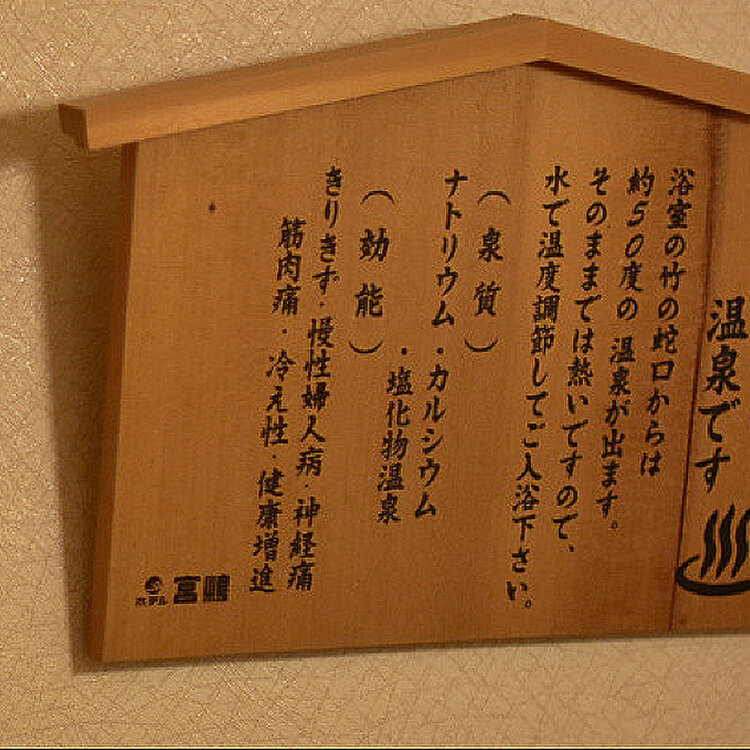 温泉です
浴室の竹の蛇口からは
約50度の 温泉が出ます。
そのままでは熱いですので、
水で温度調節してご入浴下さい。
(泉質)
ナトリウム・カルシウム
・塩化物温泉
(効能)
きりきず・慢性婦人病・神経痛
筋肉痛・冷え性・健康増進
ホテル 宮鵬